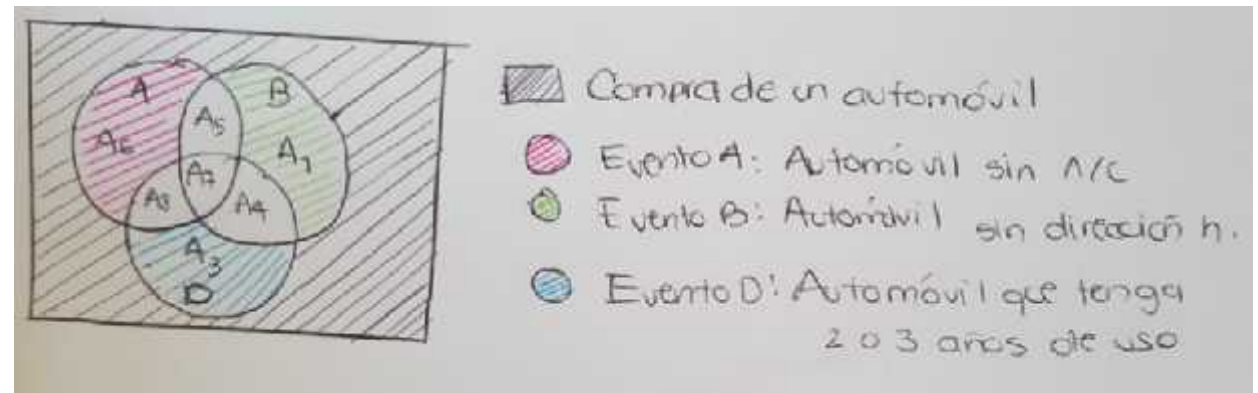 A
B
A5
A6
A1
A7
A4
A3
D
Compra de un automóvil
Evento A: Automóvil sin A/C
Evento B: Automóvil sin dirección h.
Evento D: Automóvil que tenga
2 o 3 años de uso